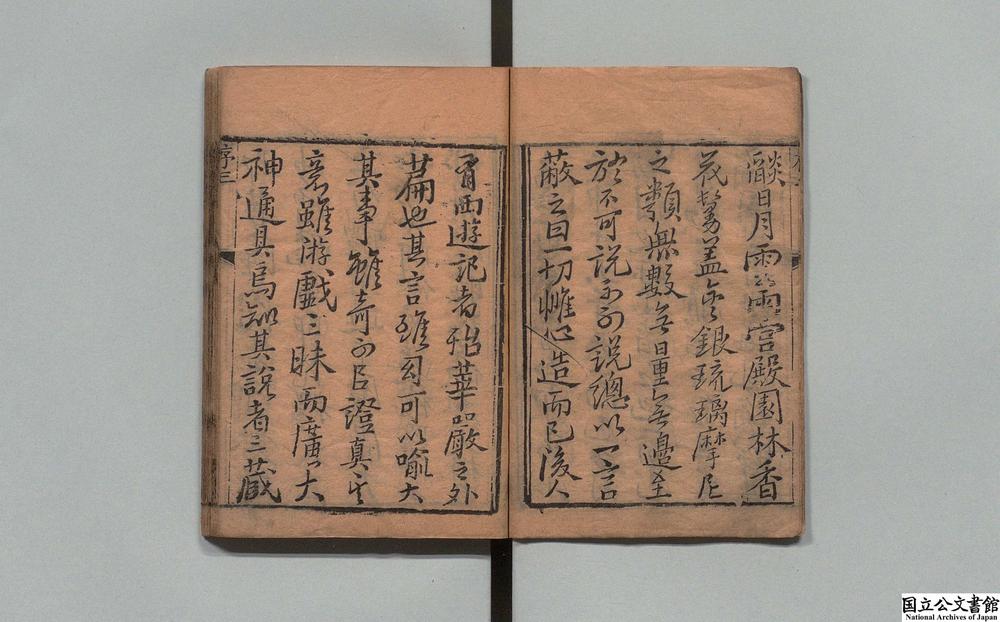 燄日月雨雲宮殿園林香
花鬘蓋金銀琉璃摩尼
之類無數無量無邊至
於不可說不可說總以一言
蔽之曰一切惟心造而已後人
有西遊記者殆華嚴之外
篇也其言雖幻可以喻大
其事雖奇可以證真其
意雖游戲三昧而廣大
神通具焉知其說者三藏
序三
国立公文書館
National Archives of Japan